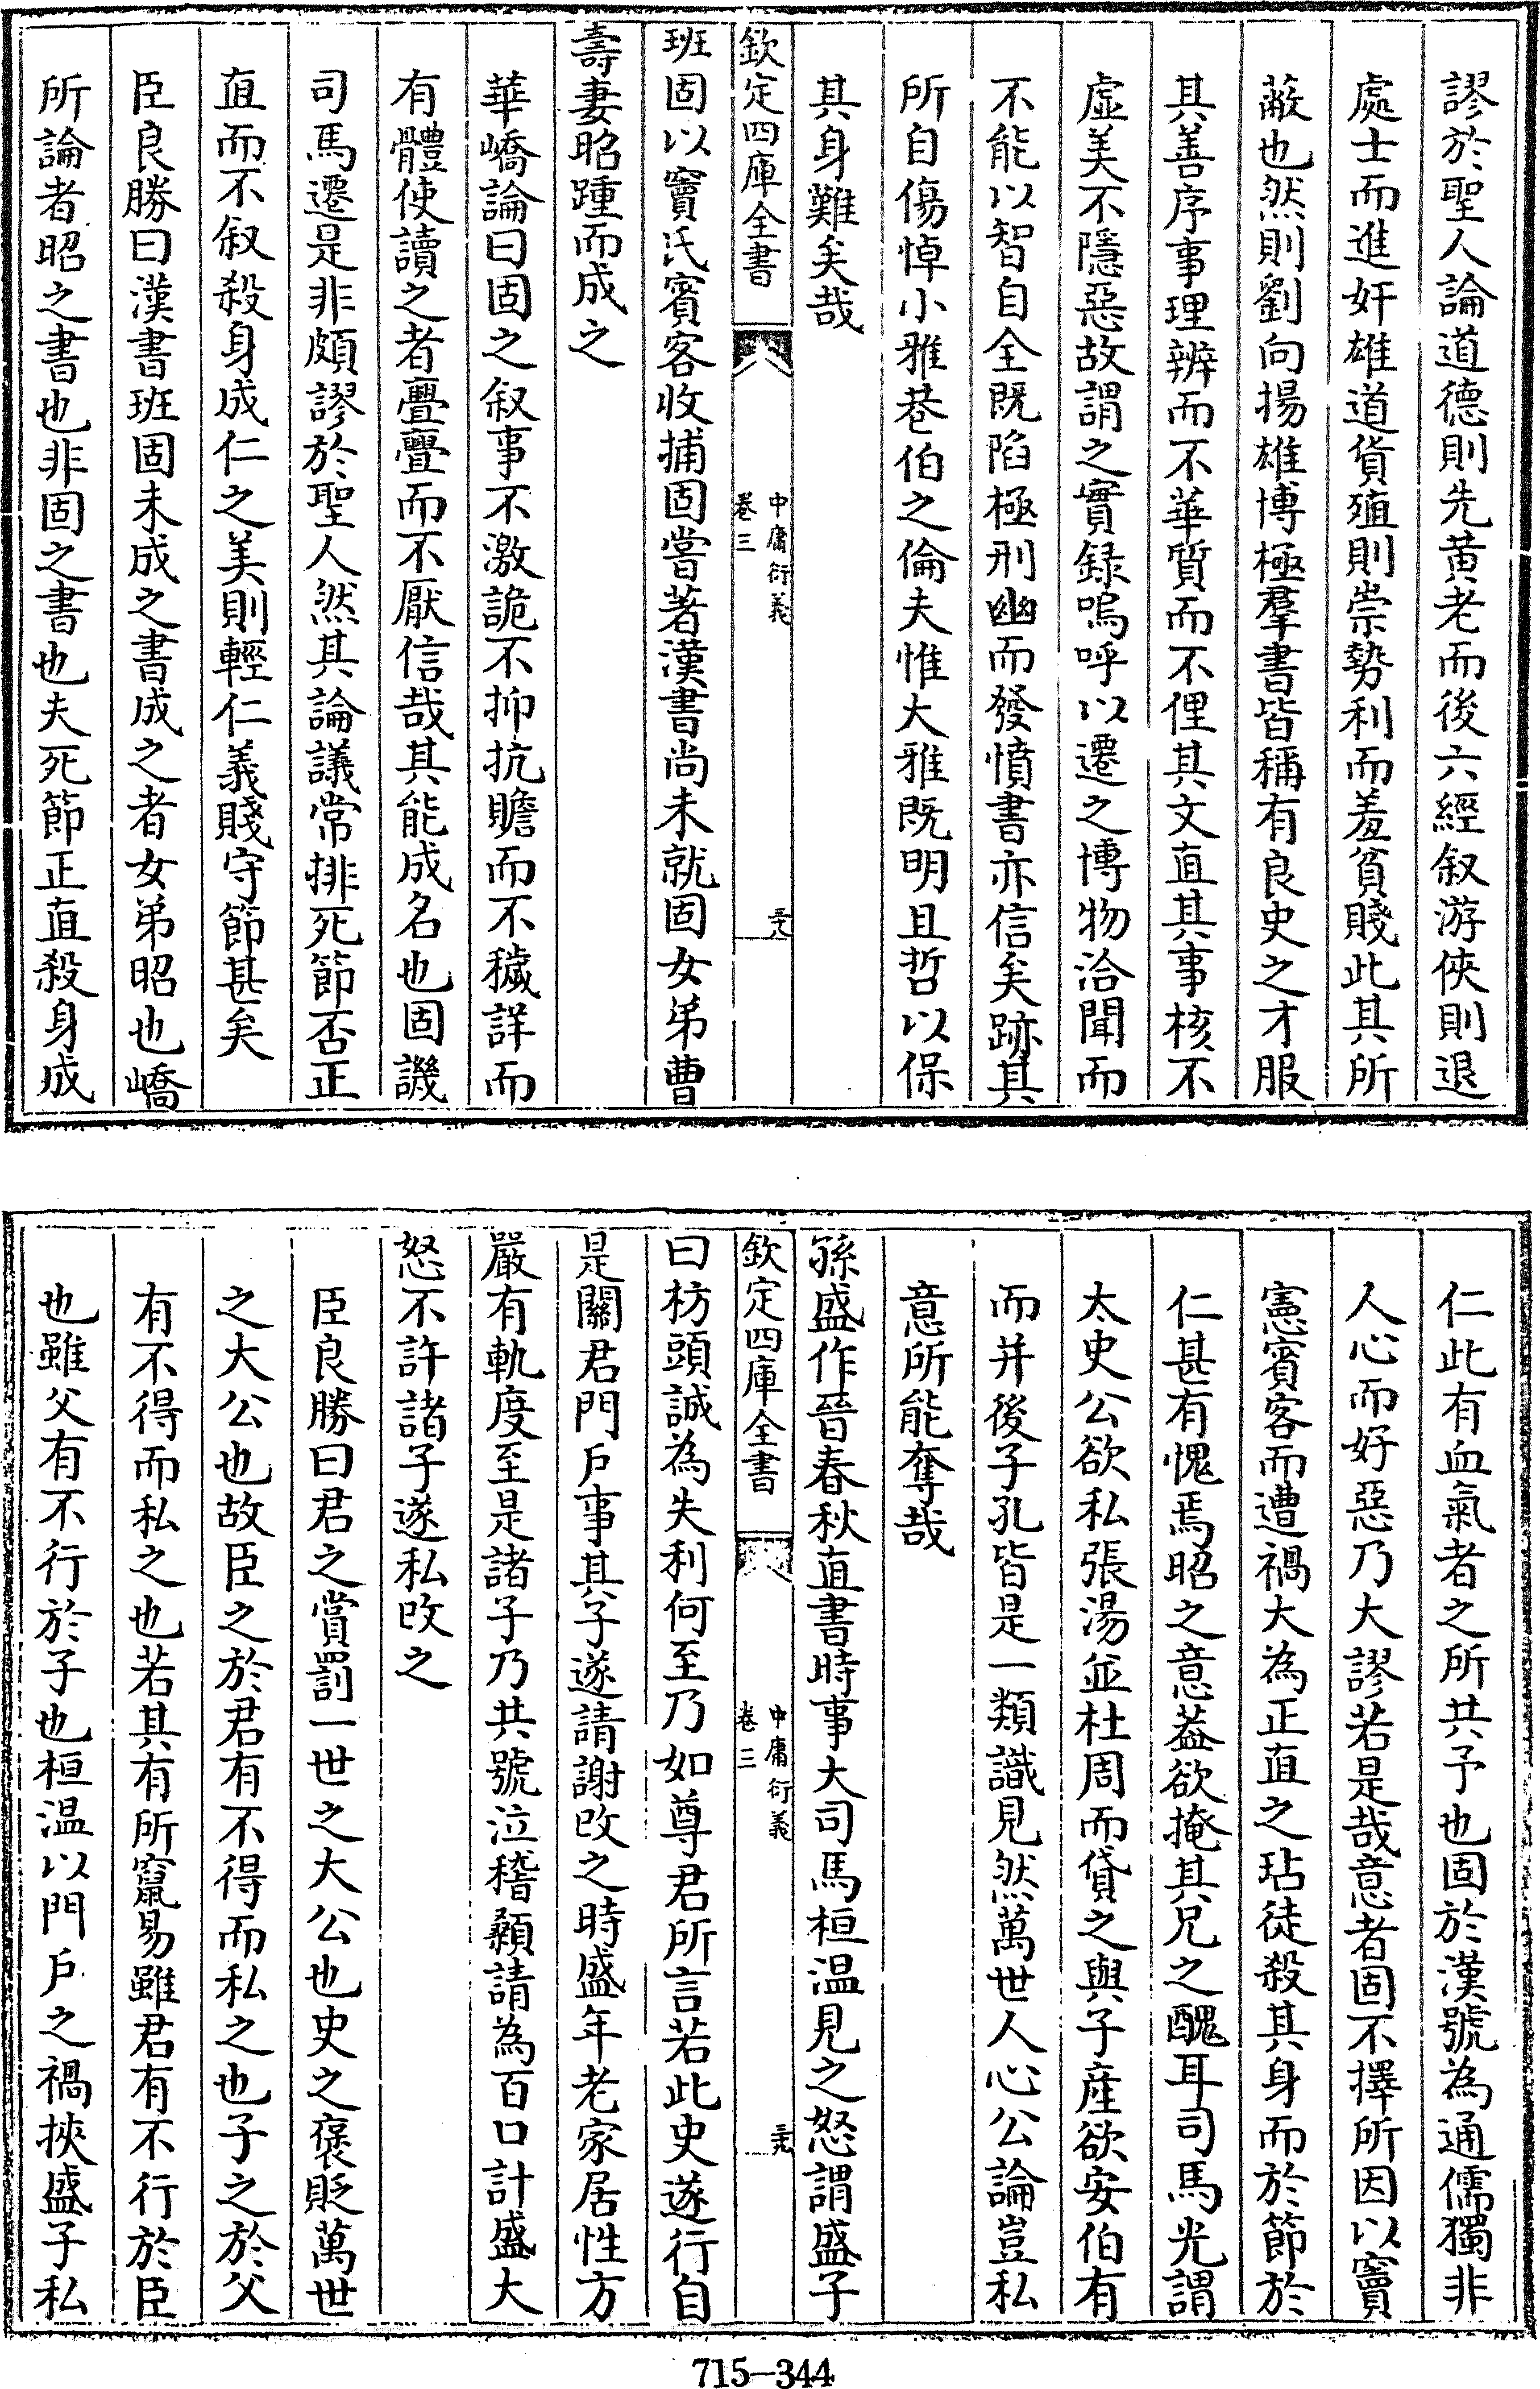 謬於聖人論道德則先黄老而後六經叙游俠則退
處士而進奸雄道貨殖則崇勢利而羞貧賤此其所
蔽也然則劉向揚雄博極羣書皆稱有良史之才服
其善序事理辨而不華質而不俚其文直其事核不
虛美不隱惡故謂之實録嗚呼以遷之博物洽聞而
不能以智自全既陷極刑幽而發憤書亦信矣跡其
所自傷悼小雅巷伯之倫夫惟大雅既明且哲以保
其身難矣哉
欽定四庫全書
中庸衍義
卷三
三八
班固以竇氏賓客收捕固嘗著漢書尚未就固女弟曹
壽妻昭踵而成之
華嶠論曰固之叙事不激詭不抑抗贍而不穢詳而
有體使讀之者亹亹而不厭信哉其能成名也固譏
司馬遷是非頗謬於聖人然其論議常排死節否正
直而不叙殺身成仁之美則輕仁義賤守節甚矣
臣良勝曰漢書班固未成之書成之者女弟昭也嶠
所論者昭之書也非固之書也夫死節正直殺身成
仁此有血氣者之所共予也固於漢號為通儒獨非
人心而好惡乃大謬若是哉意者固不擇所因以竇
憲賓客而遭禍大為正直之玷徒殺其身而於節於
仁甚有愧焉昭之意葢欲掩其兄之醜耳司馬光謂
太史公欲私張湯並杜周而貸之與子産欲安伯有
而并後子孔皆是一類識見然萬世人心公論豈私
意所能奪哉
孫盛作晉春秋直書時事大司馬桓温見之怒謂盛子
欽定四庫全書
中庸衍義
卷三
三九
曰枋頭誠為失利何至乃如尊君所言若此史遂行自
是關君門戶事其子遂請謝改之時盛年老家居性方
嚴有軌度至是諸子乃共號泣稽顙請為百口計盛大
怒不許諸子遂私改之
臣良勝曰君之賞罰一世之大公也史之褒貶萬世
之大公也故臣之於君有不得而私之也子之於父
有不得而私之也若其有所竄易雖君有不行於臣
也雖父有不行於子也桓温以門戶之禍挾盛子私
715-344